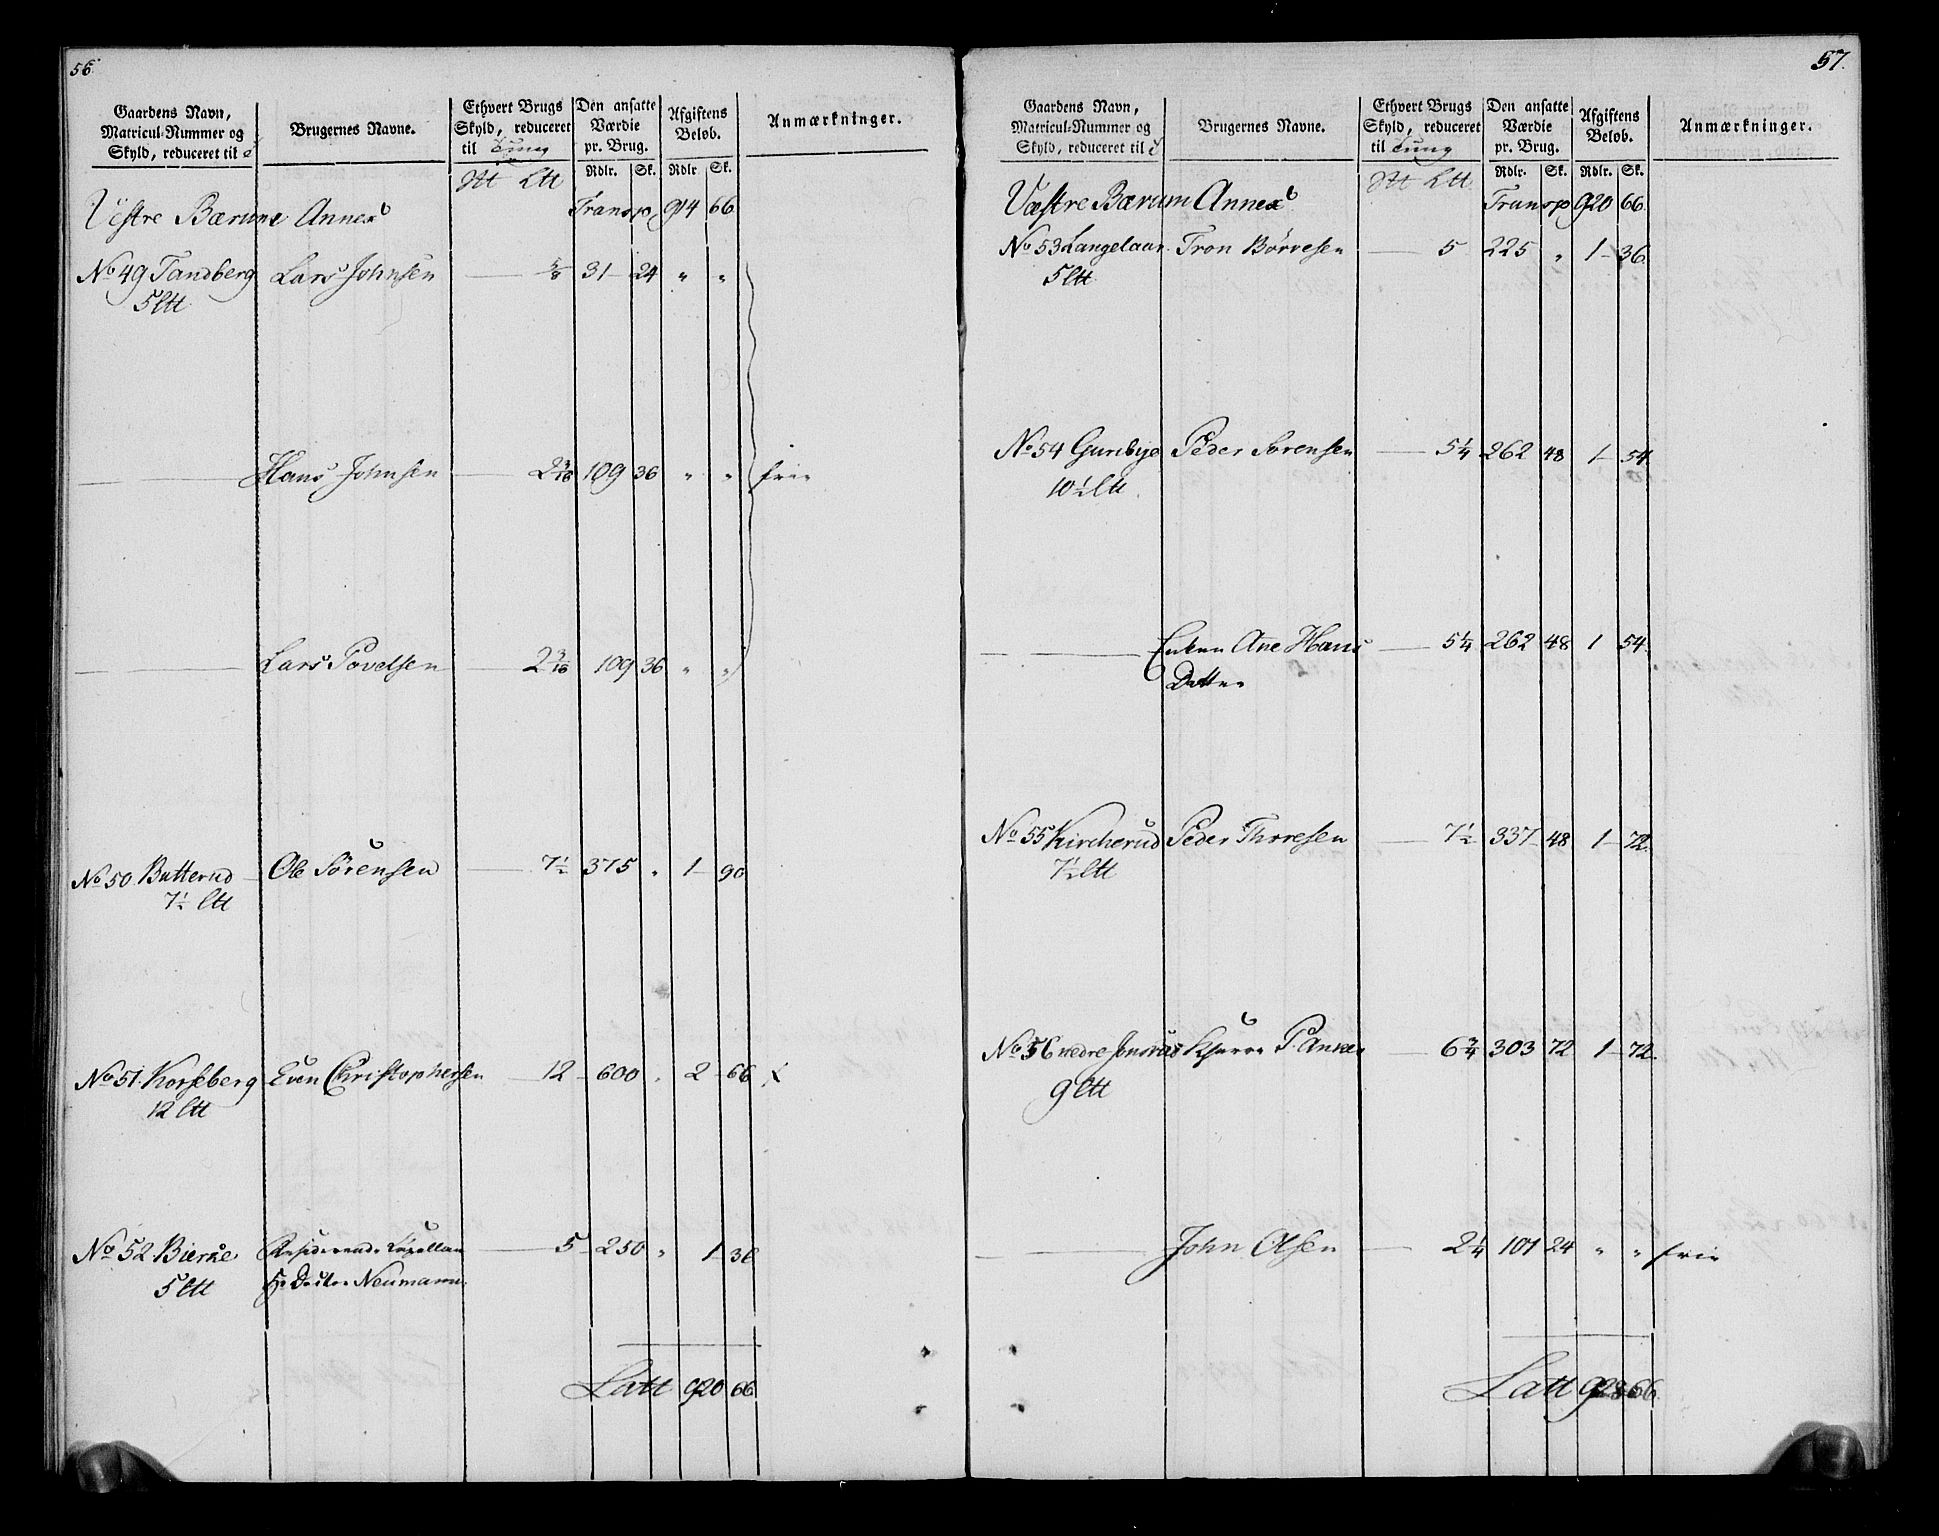 56.
Gaardens Navn, Matricul-Nummer og Skyld, reduceret til
Brugernes Navne.
Ethvert Brugs Skyld, reduceret til Tung
Den ansatte Værdie pr. Brug.
Afgiftens Beløb.
Anmærkninger.
Rdlr. Sk. Rdlr Sk.
Vestre Bærums Annex Transp 914 66
No 49 Tandberg Lars Johnsen 5/8 31 24 " "
5 Ltt
Hans Johnsen 2 3/16 109 36 " " frie
Lars Povelsen 2 3/16 109 36 " "
No 50 Butterud Ole Sørensen 7½ 375 " 1 90
7½ Ltt
No 51 Korseberg Even Christophersen 12 600 " 2 66
12 Ltt
No 52 Bierke Residerende Capellan 5 250 " 1 36
5 Ltt Hr Doctor Neumann
Latt 920 66
57.
Gaardens Navn, Matricul-Nummer og Skyld, reduceret til
Brugernes Navne.
Ethvert Brugs Skyld, reduceret til Tung
Den ansatte Værdie pr. Brug.
Afgiftens Beløb.
Anmærkninger.
Rdlr. Sk. Rdlr. Sk.
Væstre Bærum Annex Transp 920 66
No 53 Langelaar Tron Børresen 5 225 " 1 36
5 Ltt
No 54 Gunbye Peder Sørensen 5¼ 262 48 1 54
10½ Ltt
Enken Ane Hans 5¼ 262 48 1 54
Datter
No 55 Kircherud Peder Thoresen 7½ 337 48 1 72
7½ Ltt
No 56 nedre P. Anker 6¾ 303 72 1 72
9 Ltt
John Olsen 2¼ 101 24 " " frie
Latt 928 66